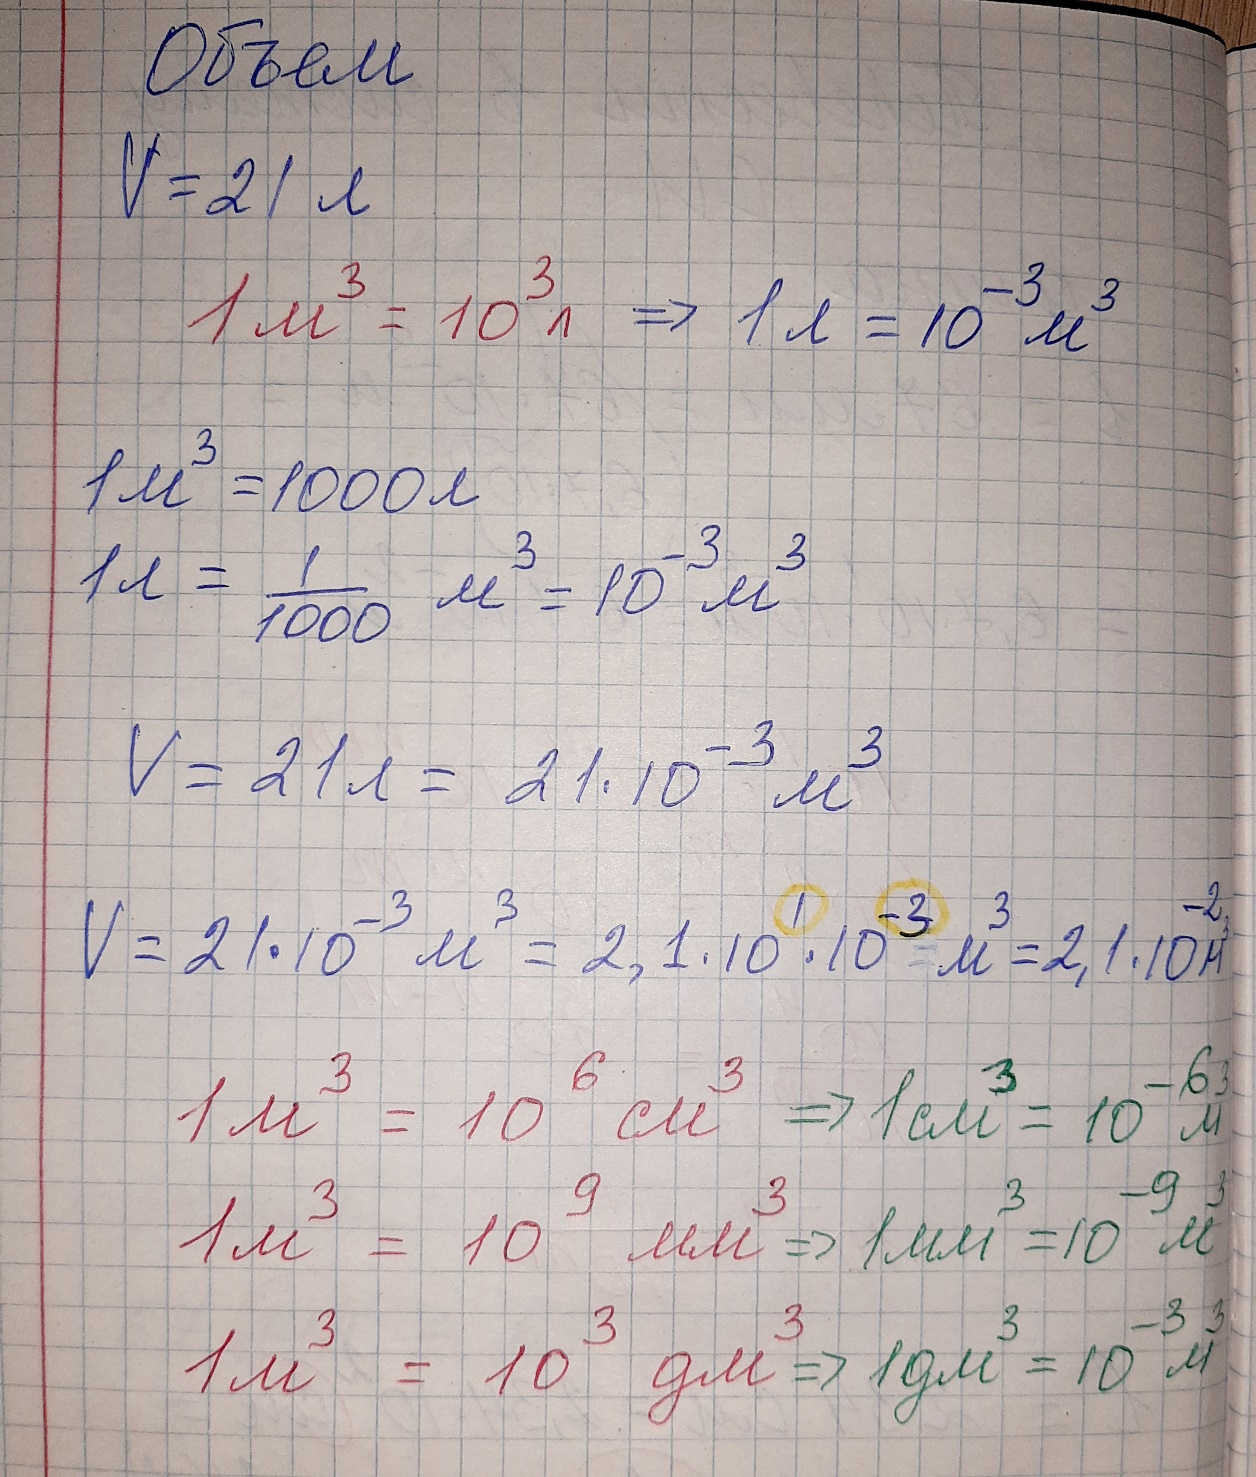 Объем
V = 21 л
1 м³ = 10³ л => 1 л = 10⁻³ м³
1 м³ = 1000 л
1 л = 1/1000 м³ = 10⁻³ м³
V = 21 л = 21 · 10⁻³ м³
V = 21 · 10⁻³ м³ = 2,1 · 10¹ · 10⁻³ м³ = 2,1 · 10⁻² м³
1 м³ = 10⁶ см³ => 1 см³ = 10⁻⁶ м³
1 м³ = 10⁹ мм³ => 1 мм³ = 10⁻⁹ м³
1 м³ = 10³ дм³ => 1 дм³ = 10⁻³ м³